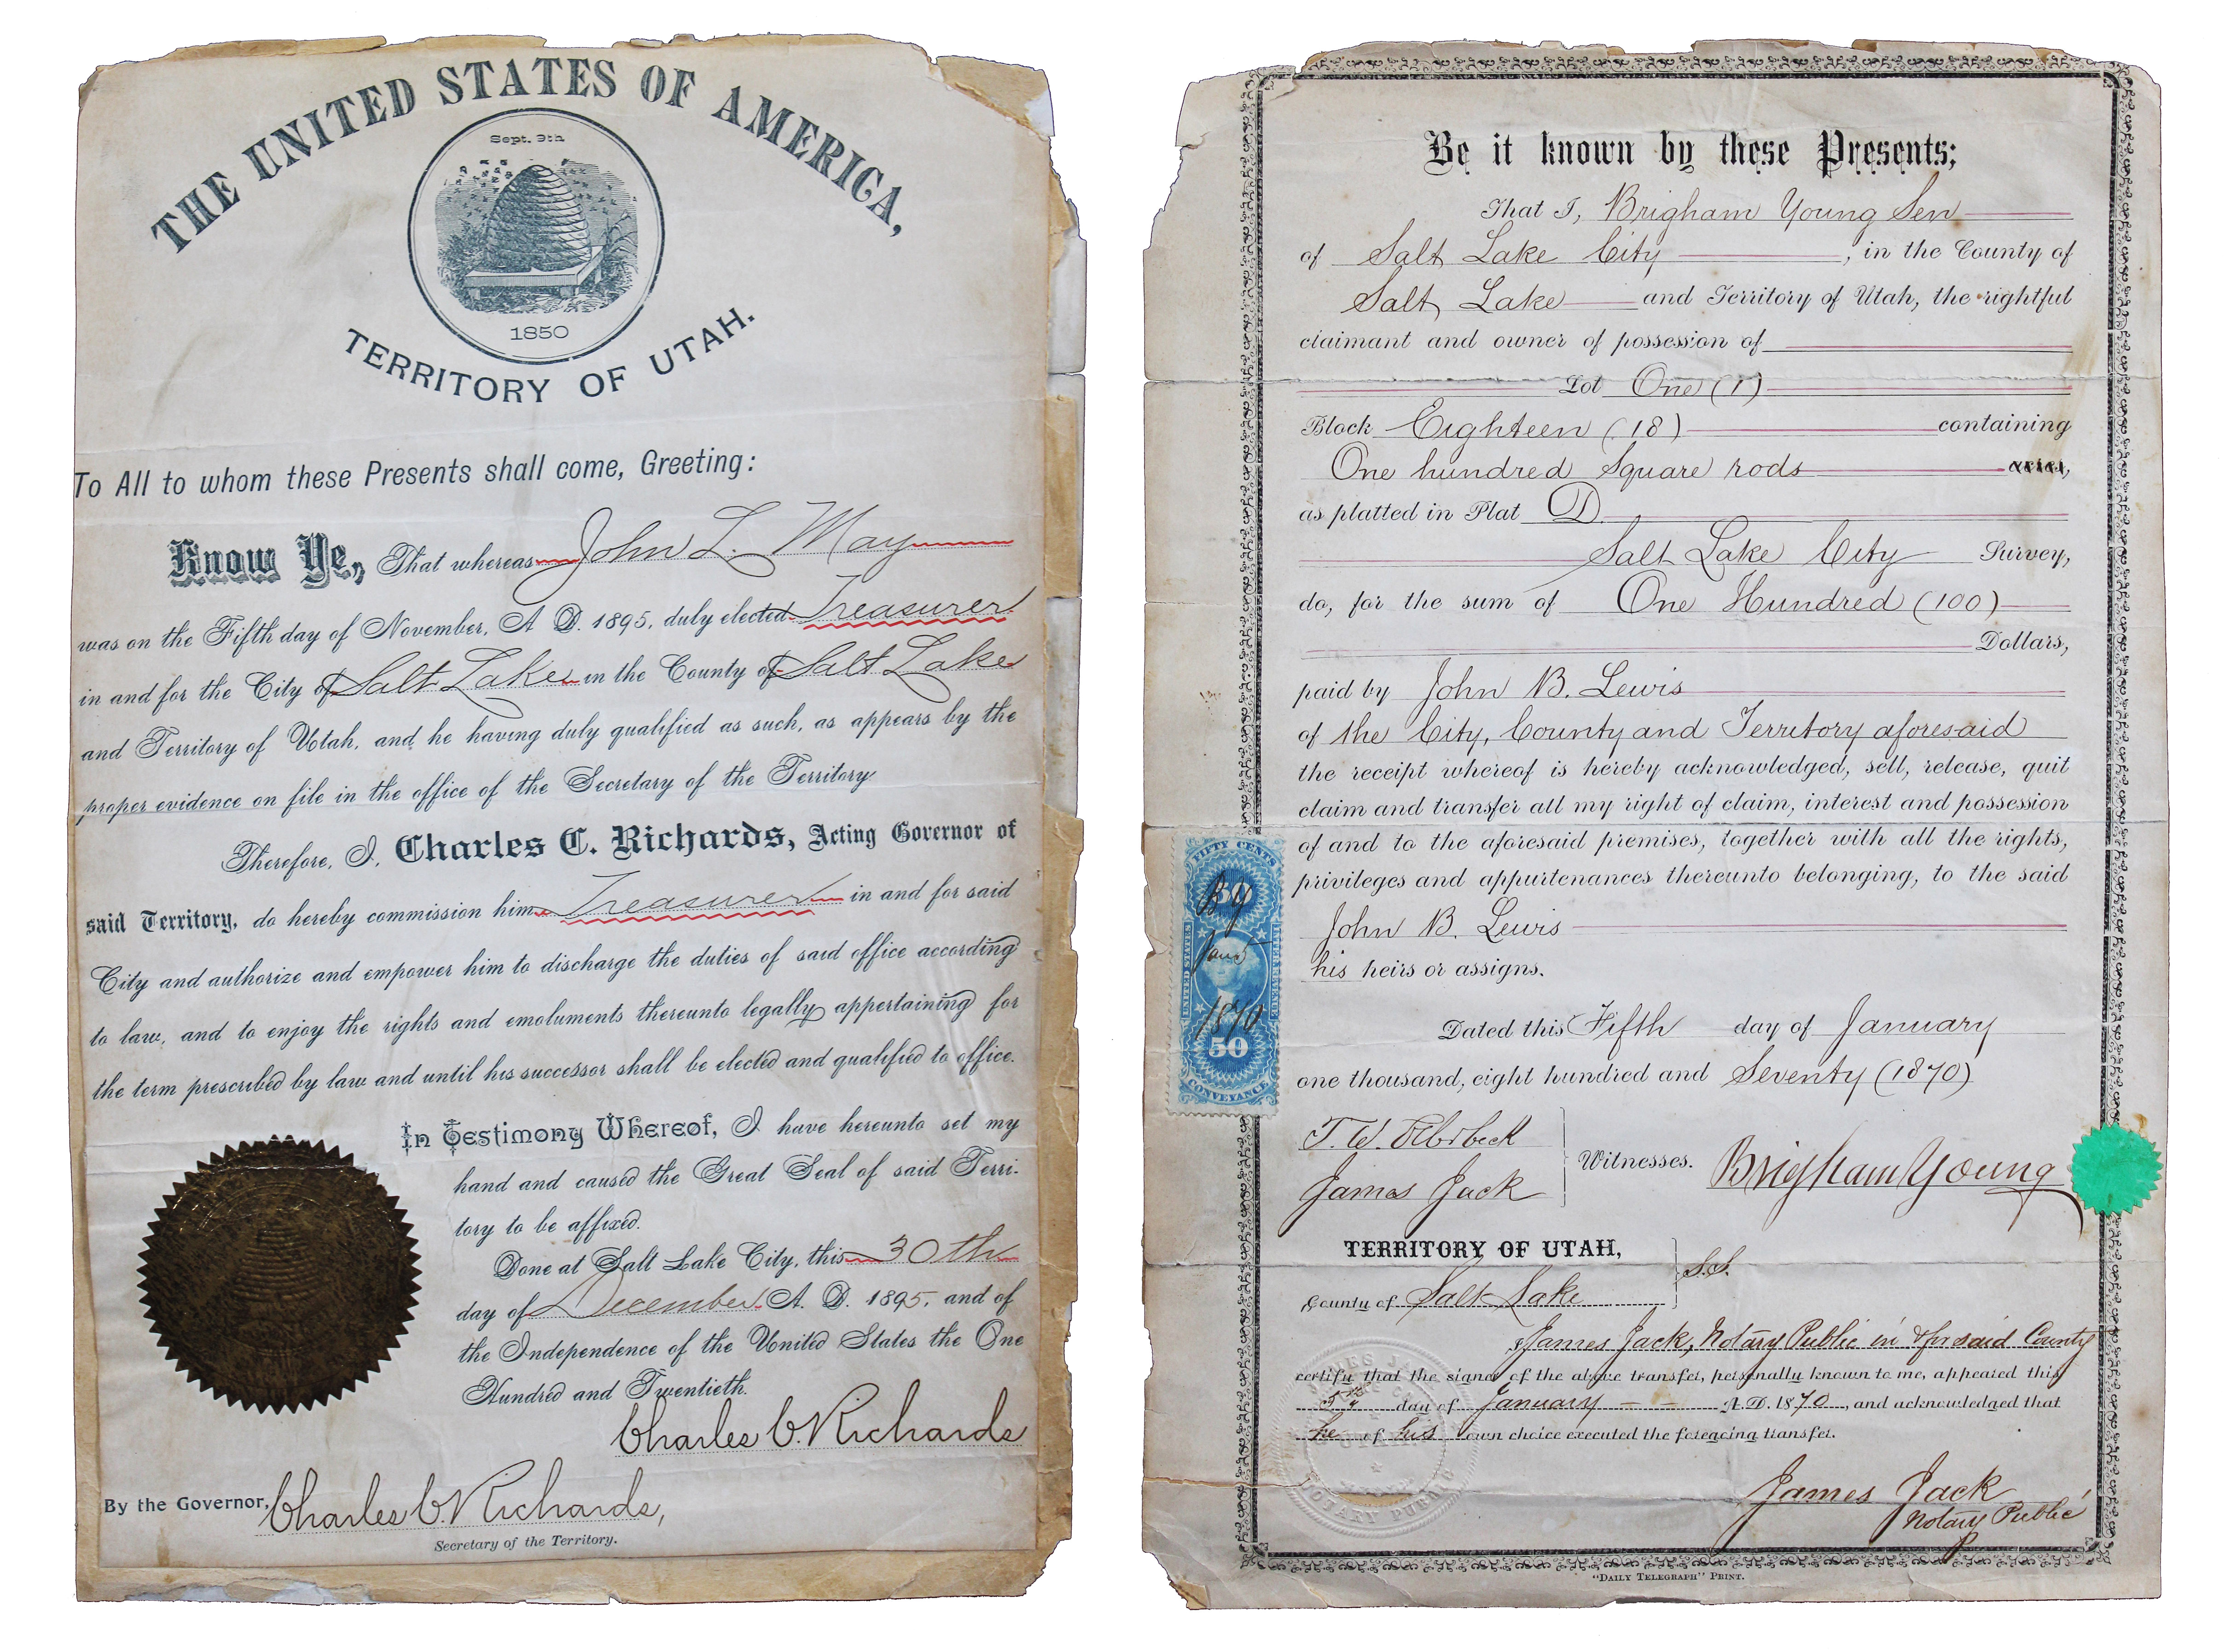 THE UNITED STATES OF AMERICA,
Sept. 9th
1850
TERRITORY OF UTAH.
To All to whom these Presents shall come, Greeting:
Know Ye, That whereas John L. May
was on the Fifth day of November, A. D. 1895, duly elected Treasurer
in and for the City of Salt Lake in the County of Salt Lake
and Territory of Utah, and he having duly qualified as such, as appears by the
proper evidence on file in the office of the Secretary of the Territory
Therefore, I, Charles C. Richards, Acting Governor of
said Territory, do hereby commission him Treasurer in and for said
City and authorize and empower him to discharge the duties of said office according
to law, and to enjoy the rights and emoluments thereunto legally appertaining for
the term prescribed by law and until his successor shall be elected and qualified to office.
In Testimony Whereof, I have hereunto set my
hand and caused the Great Seal of said Terri-
tory to be affixed.
Done at Salt Lake City, this 30th
day of December A. D. 1895, and of
the Independence of the United States the One
Hundred and Twentieth.
Charles C. Richards
By the Governor, Charles C. Richards,
Secretary of the Territory.
Be it known by these Presents;
That I, Brigham Young Sen
of Salt Lake City, in the County of
Salt Lake and Territory of Utah, the rightful
claimant and owner of possession of
Lot One (1)
Block Eighteen (18) containing
One hundred Square rods
as platted in Plat D.
Salt Lake City Survey,
do, for the sum of One Hundred (100)
Dollars,
paid by John B. Lewis
of the City, County and Territory aforesaid
the receipt whereof is hereby acknowledged, sell, release, quit
claim and transfer all my right of claim, interest and possession
of and to the aforesaid premises, together with all the rights,
privileges and appurtenances thereunto belonging, to the said
John B. Lewis
his heirs or assigns.
FIFTY CENTS
50
UNITED STATES
INTER. REVENUE
B Y
Jan 5
1870
50
CONVEYANCE
Dated this Fifth day of January
one thousand, eight hundred and Seventy (1870)
T. W. Ellerbeck
James Jack
Witnesses.
Brigham Young
TERRITORY OF UTAH,
S.S.
County of Salt Lake
I James Jack, Notary Public in & for said County
certify that the signer of the above transfer, personally known to me, appeared this
5th day of January A. D. 1870, and acknowledged that
he of his own choice executed the foregoing transfer.
James Jack
Notary Public
NOTARY PUBLIC
"DAILY TELEGRAPH" PRINT.